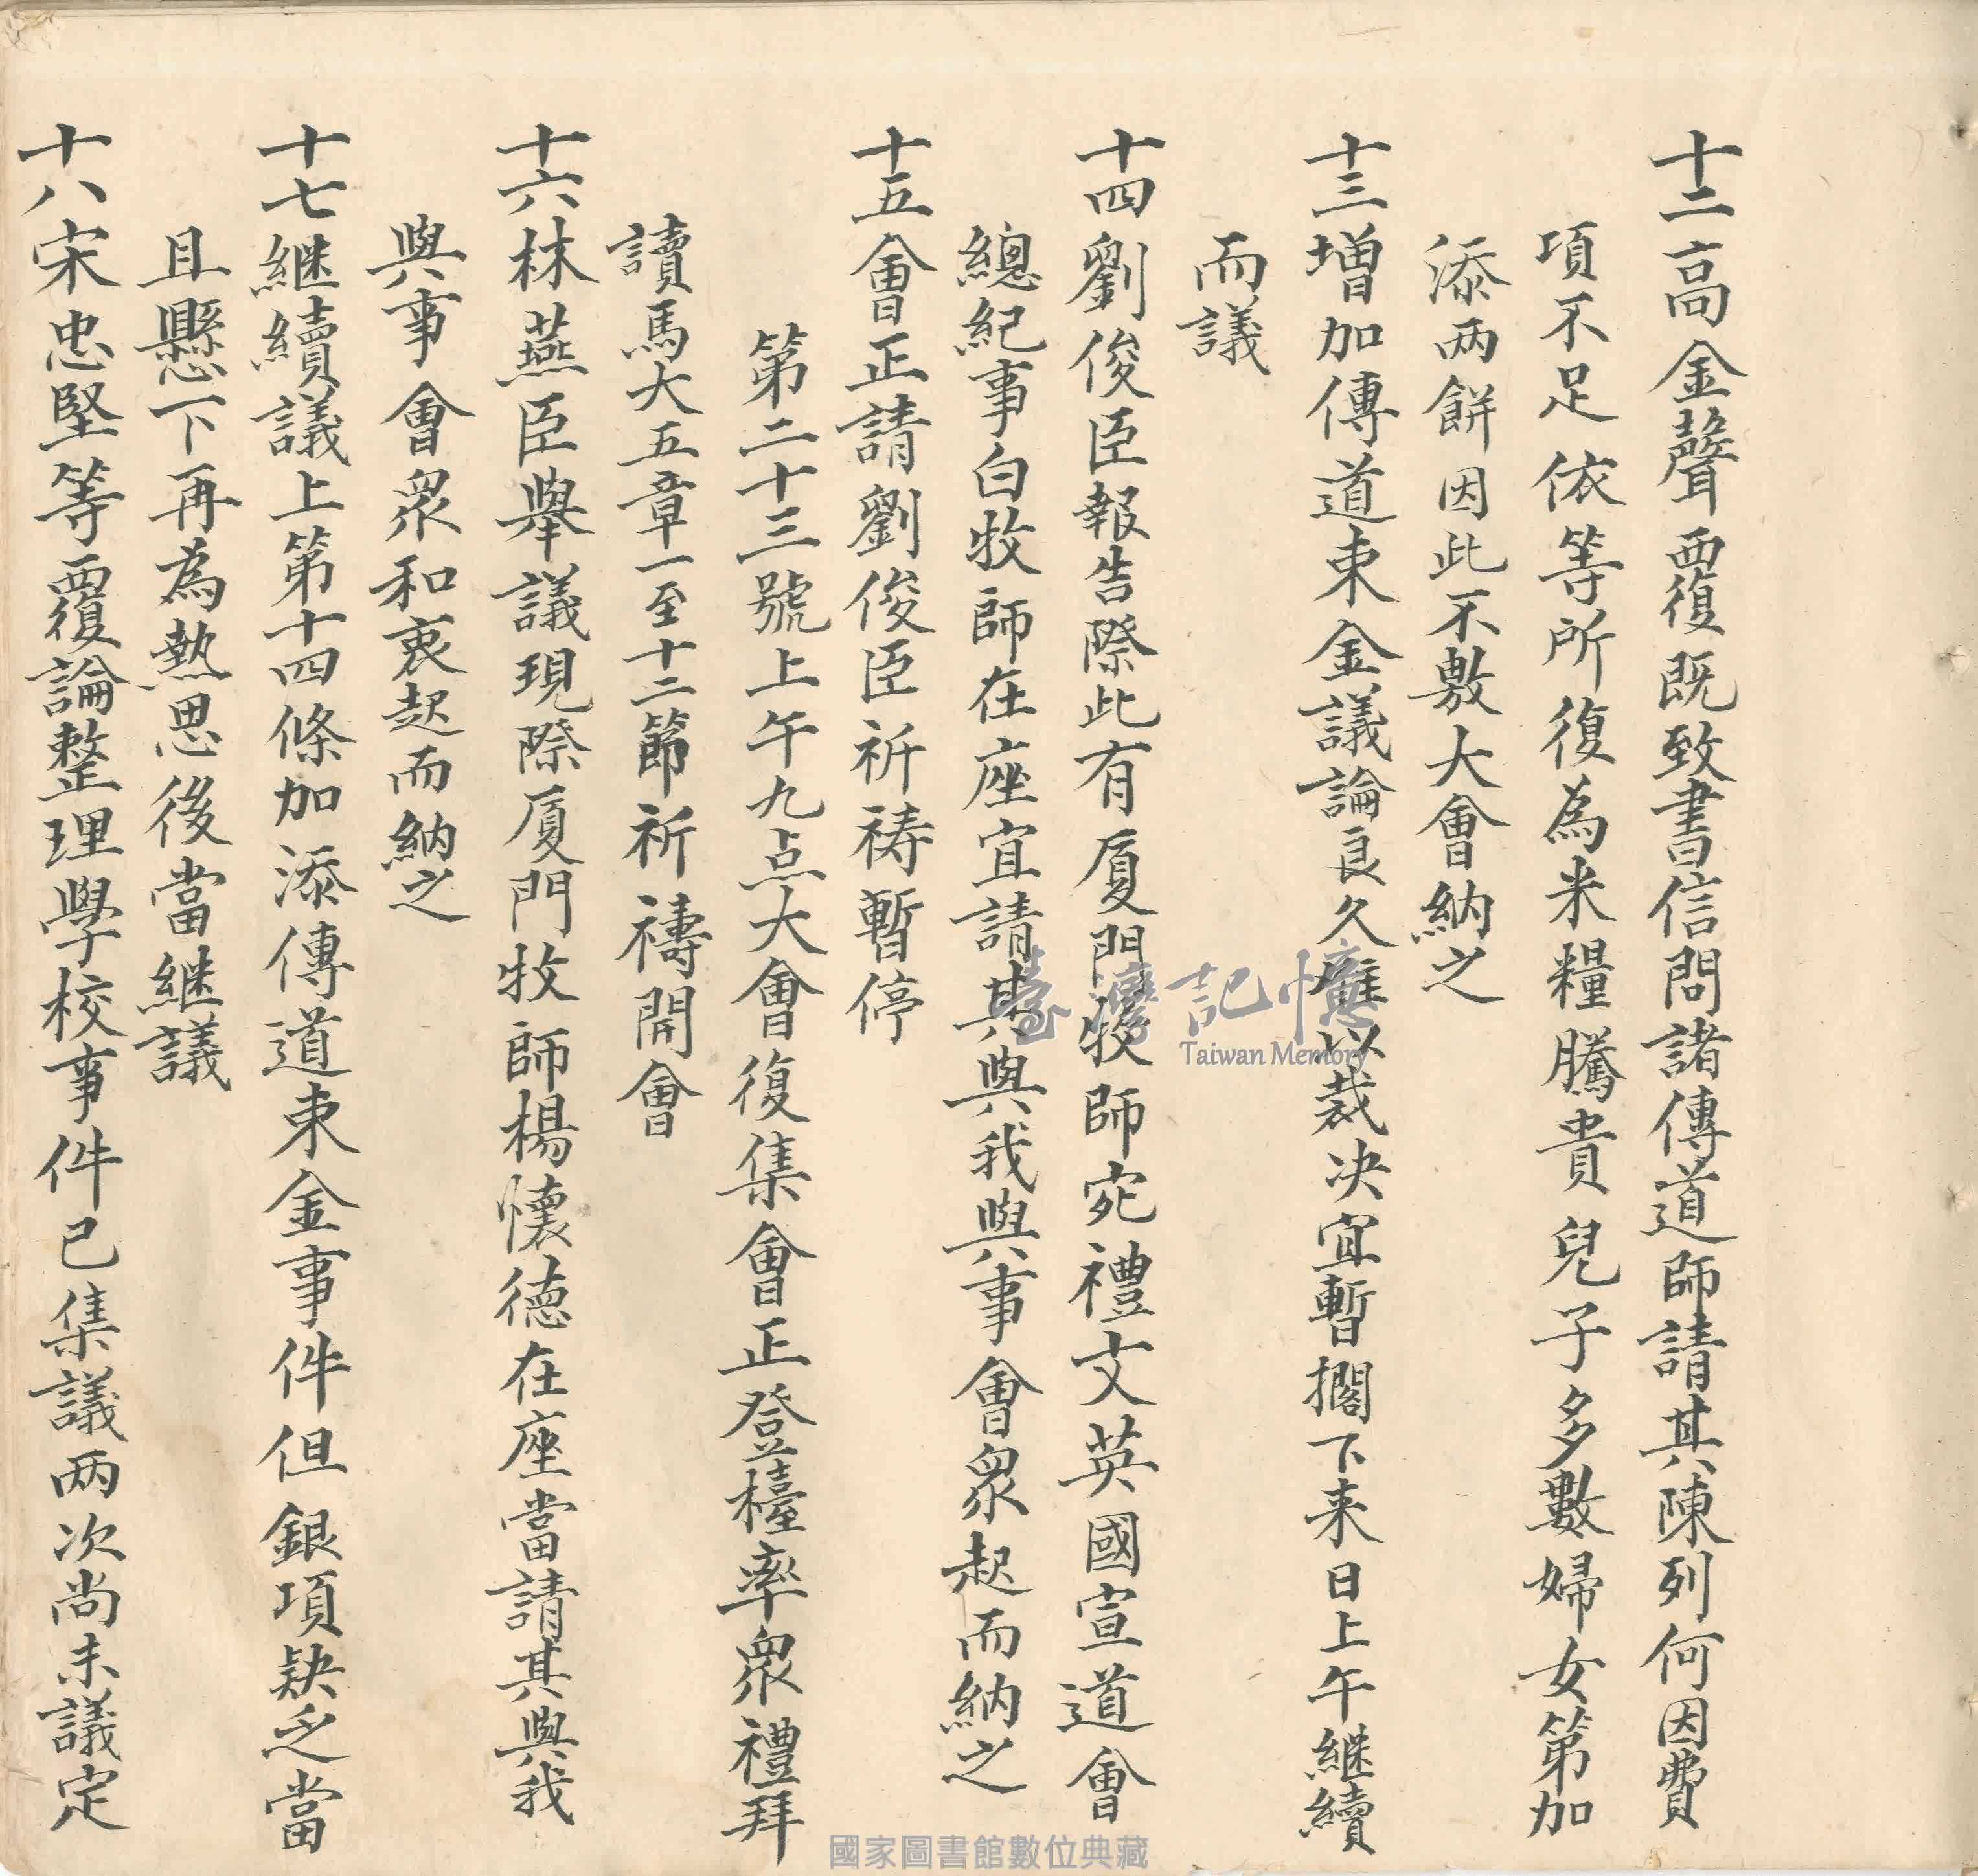 十二高金聲覆既致書信問諸傳道師請其陳列何因費
項不足依等所復為米糧騰貴兒子多數婦女第加
添两餅因此不敷大會納之
十三增加傳道束金議論良久難以裁决宜暫擱下来日上午継續
而議
十四劉俊臣報告際此有厦門牧師宛禮文英國宣道會
總紀事白牧師在座宜請其與我與事會衆起而納之
十五會正請劉俊臣祈祷暫停
第二十三號上午九点大會復集會正登檯率衆禮拜
讀馬太五章一至十二節祈禱開會
十六林燕臣舉議現際厦門牧師楊懷德在座當請其與我
與事會衆和衷起而納之
十七継續議上第十四條加添傳道束金事件但銀項缺乏當
且懸下再為熱思後當継議
十八宋忠堅等覆論整理學校事件已集議两次尚未議定
臺灣記憶
Taiwan Memory
國家圖書館數位典藏